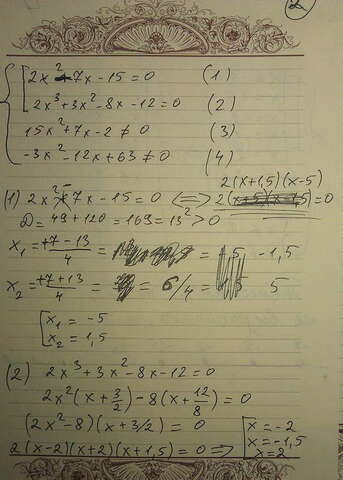 2
2x² - 7x - 15 = 0 (1)
2x³ + 3x² - 8x - 12 = 0 (2)
15x² + 7x - 2 ≠ 0 (3)
-3x² - 12x + 63 ≠ 0 (4)
2(x+1,5)(x-5)
(1) 2x² - 7x - 15 = 0 <=> 2 = 0
D = 49 + 120 = 169 = 13² > 0
x₁ = +7-13/4 = = -1,5
x₂ = +7+13/4 = = 6/4 = 5
x₁ = -5
x₂ = 1,5
(2) 2x³ + 3x² - 8x - 12 = 0
2x²(x + 3/2) - 8(x + 12/8) = 0
(2x² - 8)(x + 3/2) = 0
2(x-2)(x+2)(x+1,5) = 0 =>
x = -2
x = -1,5
x = 2